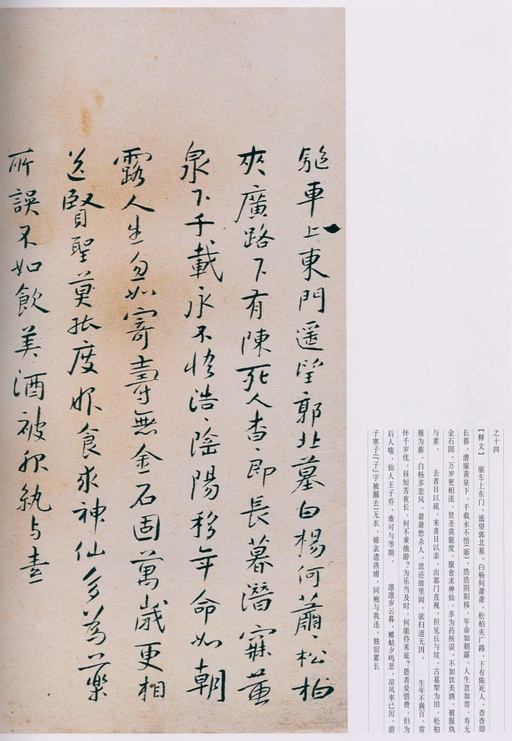 之十四
【释文】 驱车上东门，遥望郭北墓。白杨何萧萧，松柏夹广路。下有陈死人，杳杳即
长暮。潜寐黄泉下，千载永不悟(寤)。浩浩阴阳移，年命如朝露。人生忽如寄，寿无
金石固。万岁更相送，贤圣莫能度。服食求神仙，多为药所误。不如饮美酒，被服纨
与素。 去者日以疏，来者日以亲。出郭门直视，但见丘与坟。古墓犁为田，松柏
摧为薪。白杨多悲风，萧萧愁杀人。思还故里闾，欲归道无因。 生年不满百，常
怀千岁忧。昼短苦夜长，何不秉烛游？为乐当及时，何能待来兹？愚者爱惜费，但为
后人嗤。仙人王子乔，难可与等期。 凛凛岁云暮，蝼蛄夕鸣悲。凉风率已厉，游
子寒子(“子”字被圈去)无衣。锦衾遗洛浦，同袍与我违。独宿累长
驅車上東門遥望郭北墓白楊何蕭〻松柏
夾廣路下有陳死人杳〻即長暮潛寐黃
泉下千載永不悟浩〻陰陽移年命如朝
露人生忽如寄壽無金石固萬歲更相
送賢聖莫能度服食求神仙多為藥
所誤不如飲美酒被服紈与素